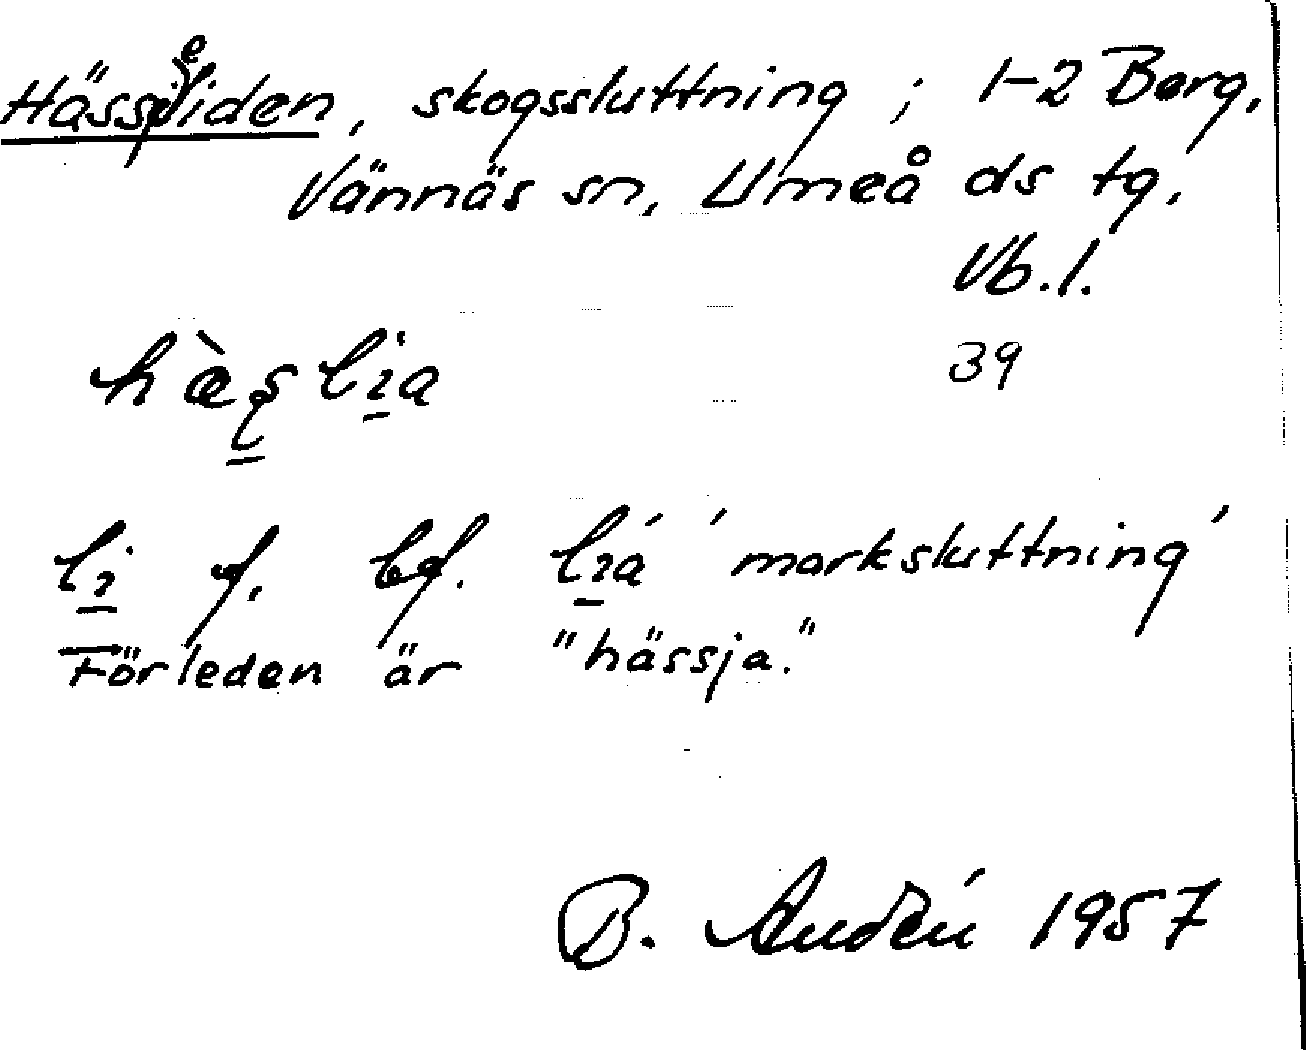 Hässjeliden, skogssluttning; 1-2 Berg.
Vännäs sn, Umeå ds tg.
Vb.l.
39
li f. bf. lia ́ 'marksluttning'
Förleden är "hässja."
B. Andén 1957